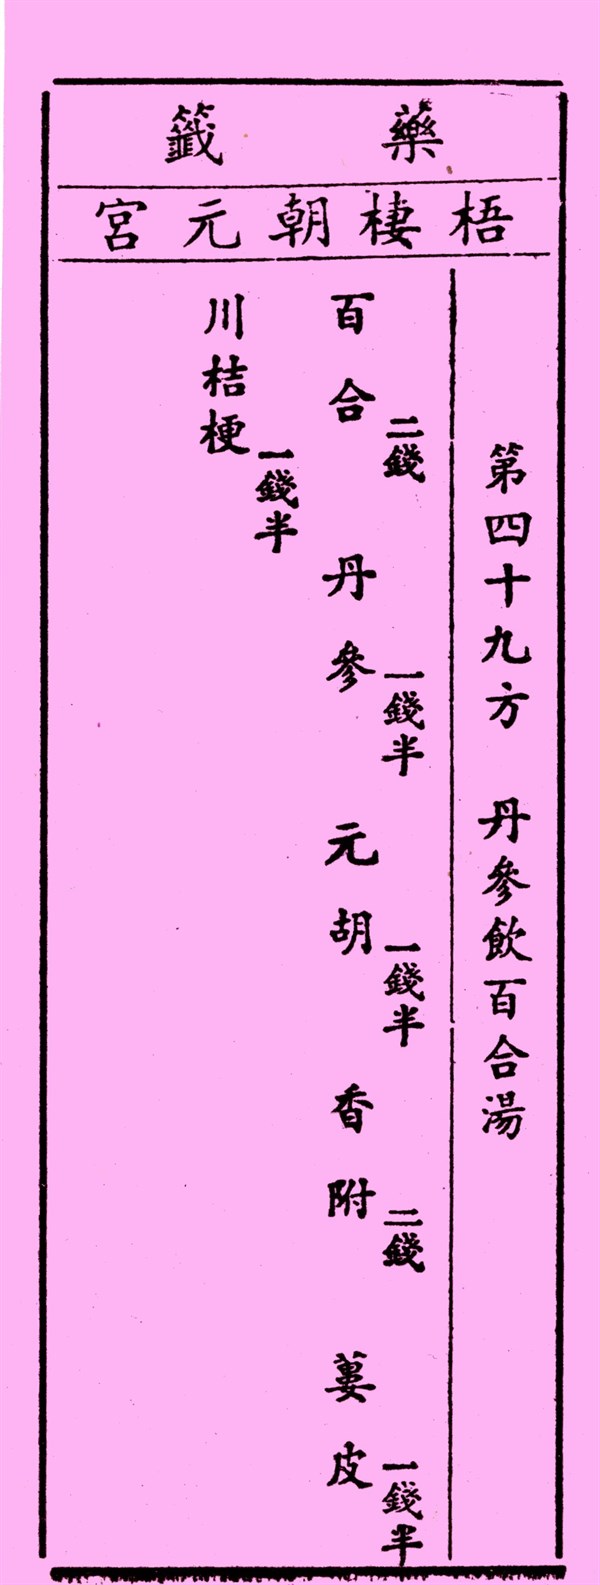 藥籤
梧棲朝元宮
第四十九方 丹參飲百合湯
百合二錢 丹參一錢半 元胡一錢半 香附二錢 蔞皮一錢半
川桔梗一錢半